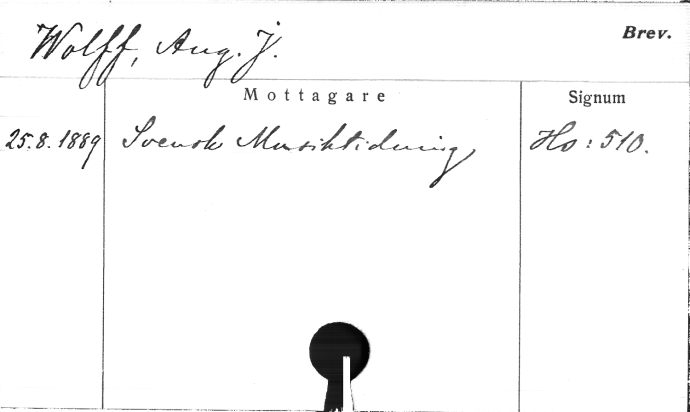 Wolff, Aug. J.
Brev.
Mottagare
Signum
25.8.1889 Svensk Musiktidning Hs: 510.